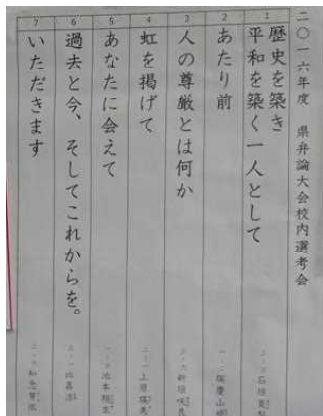 二〇一六年度 県弁論大会校内選考会
1
歴史を築き
平和を築く一人として
2
あたり前
3
人の尊厳とは何か
4
虹を掲げて
5
あなたに会えて
6
過去と今、そしてこれからを。
7
いただきます